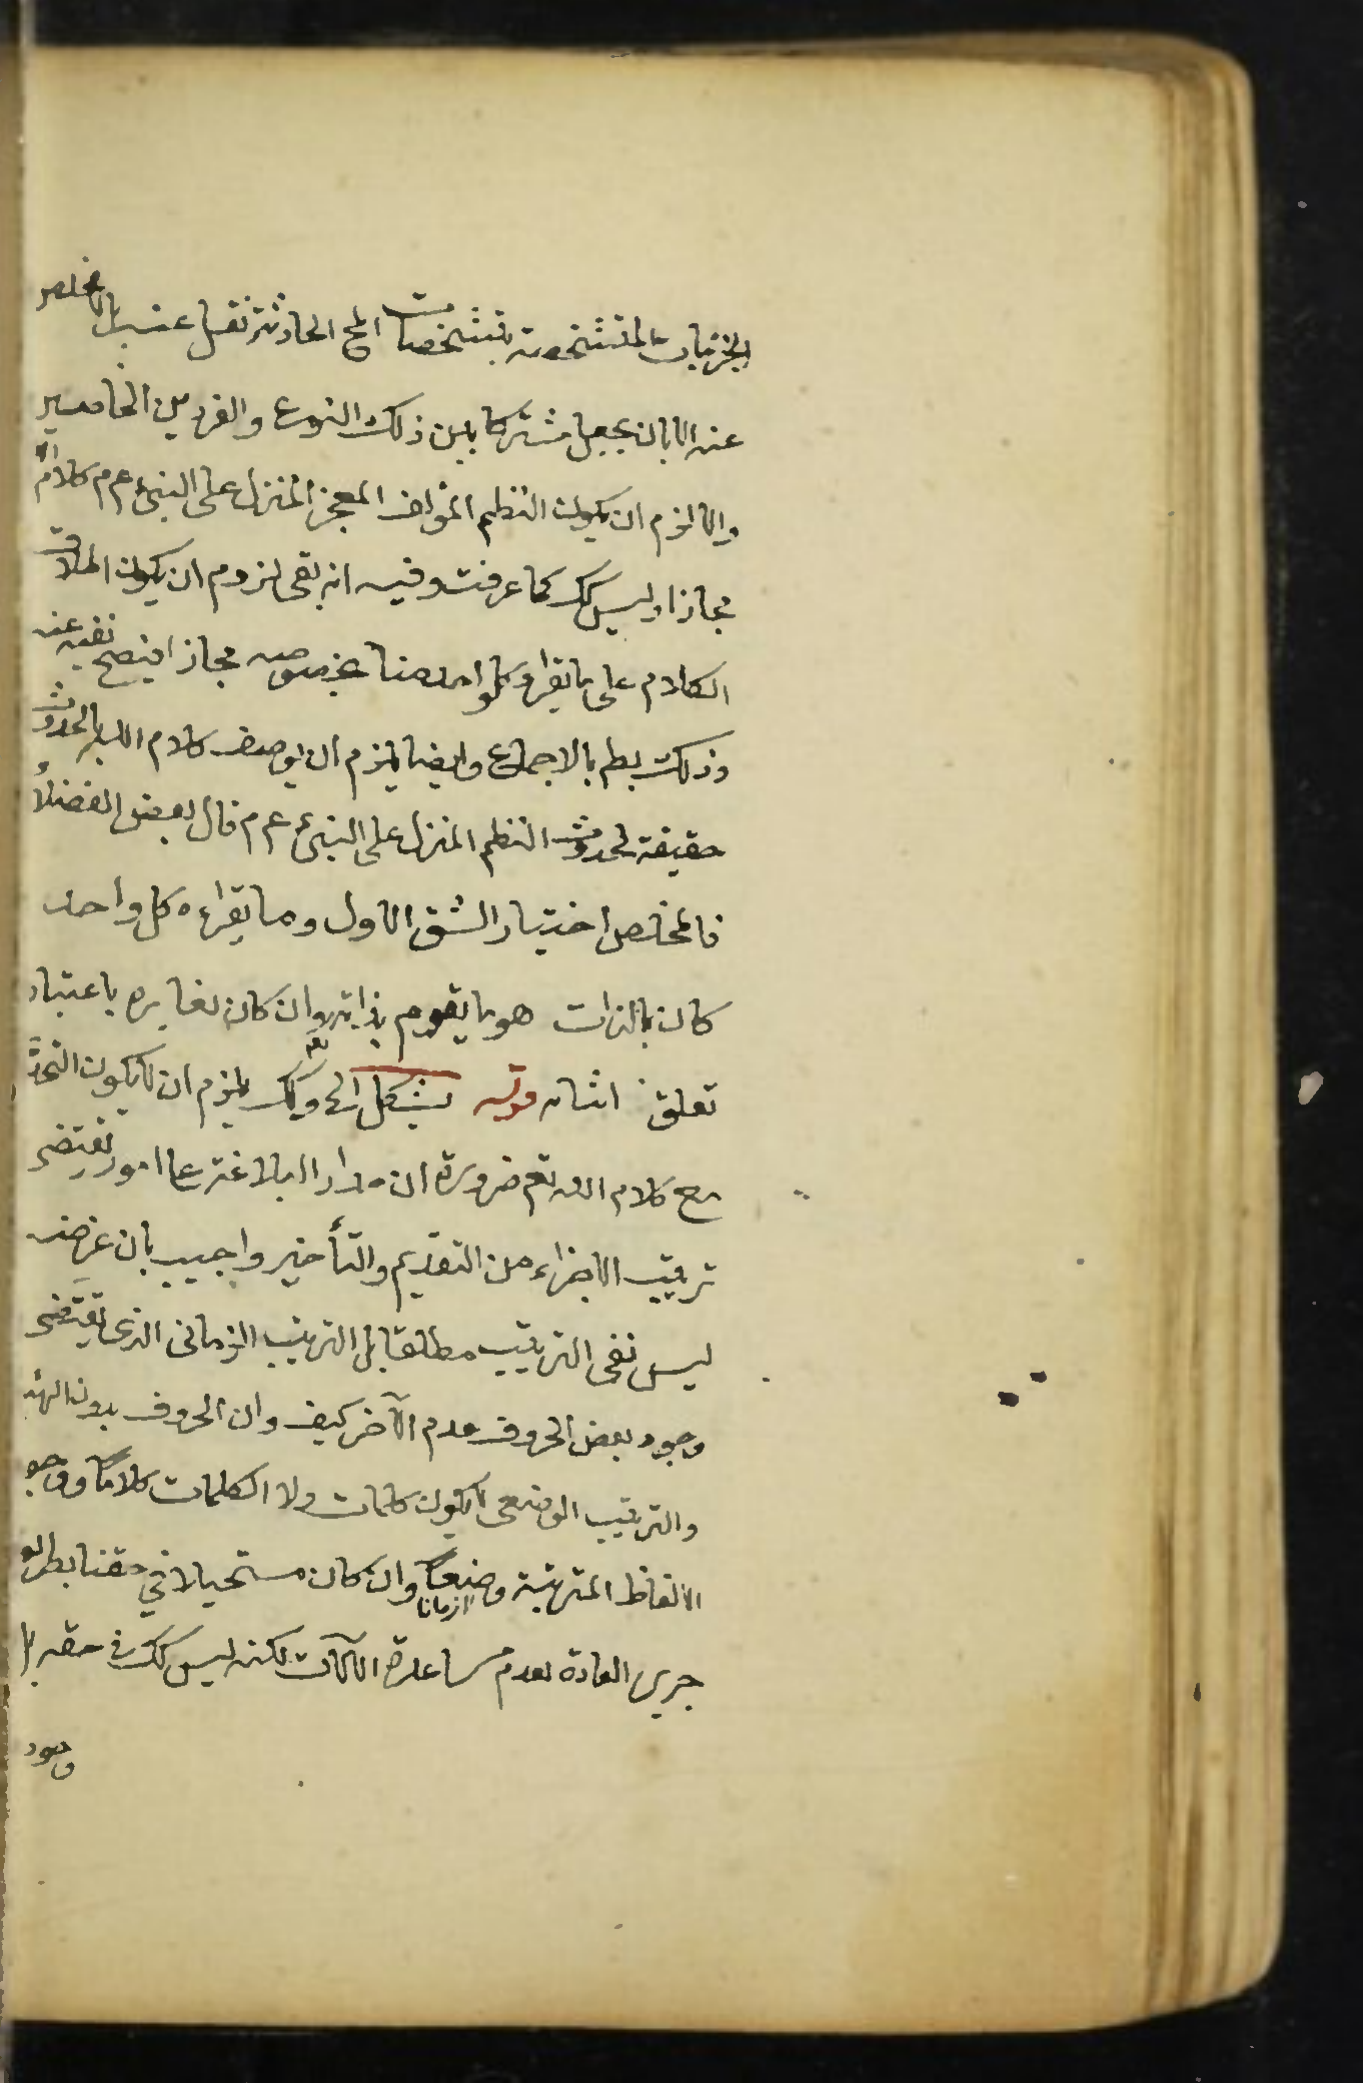 الجزئيات المتشخصة بتشخصات المح الحادثة نقل عنه لا مخلص
عنه الا بان يجعل مشتركا بين ذلك النوع والفردين الخاصين
والا لزم ان يكون النظم المؤلف المعجز المنزل على النبي عم م كلام الله
مجازا وليس كك كما عرفت وفيه انه بقى لزوم ان يكون اطلاق
الكلام على ما يقراؤ كل واحد منا بخصوصه مجازا فيصح نفيه عنه
وذلك بط بالاجماع وايضا يلزم ان يوصف كلام الله بالحدوث
حقيقة لحدوث النظم المنزل على النبي عم م قال بعض الفضلاء
فالمخلص اختيار الشق الاول وما يقراءه كل واحد
كان بالذات هو ما يقوم بذاته وان كان يغايره باعتبار
تعلق قوله يشكل الخ وكك يلزم ان لا يكون التحدى
مع كلام الله تعم ضرورة ان مدار البلاغة على امور تقتضى
ترتيب الاجزاء من التقديم والتأخير واجيب بان غرضه
ليس نفى الترتيب مطلقا بل الترتيب الزمانى الذى يقتضى
وجود بعض الحروف عدم الآخر كيف وان الحروف بدون الهيئة
والترتيب الوضعى لا يكون كلمات ولا الكلمات كلاما ووجود
الالفاظ المترتبة وضعا وان كان مستحيلا في حقنا بطريق
جرى العادة لعدم مساعدة الآلات لكنه ليس كك في حقه بل
وجود